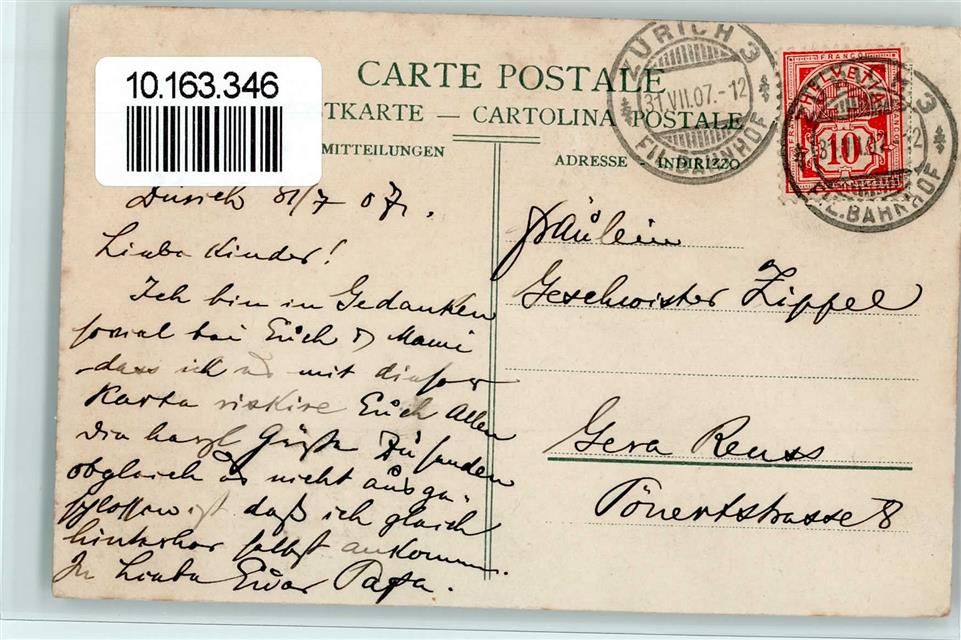 10.163.346
CARTE POSTALE
TKARTE — CARTOLINA POSTALE
MITTEILUNGEN
ADRESSE - INDIRIZZO
ZÜRICH 3
31.VII.07.-12
FIL.BAHNHOF
FRANCO
HELVETIA
10
3
FIL.BAHNHOF
Zürich 31/7 07.
Liebe Kinder!
Ich bin in Gedanken
soviel bei Euch & Mami
dass ich es mit dieser
Karte riskire Euch Allen
die herzl Grüße zu senden
obgleich es nicht ausge-
schlossen ist daß ich gleich
hinterher selbst ankomme.
In Liebe Euer Papa.
Fräulein
Geschwister Zippel
Gera Reuss
Tönertstrasse 8